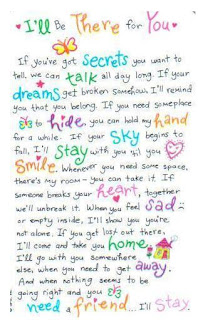 I'll Be There for You
If you've got secrets you want to
tell, we can talk all day long. If your
dreams get broken somehow, I'll remind
you that you belong. If you need someplace
to hide, you can hold my hand
for a while. If your sky begins to
fall, I'll stay with you 'til you
smile. Whenever you need some space,
there's my room - you can take it. If
someone breaks your heart, together
we'll unbreak it. When you feel sad
or empty inside, I'll show you you're
not alone. If you get lost out there,
I'll come and take you home.
I'll go with you somewhere
else, when you need to get away.
And when nothing seems to be
going right and you
need a friend... I'll stay.